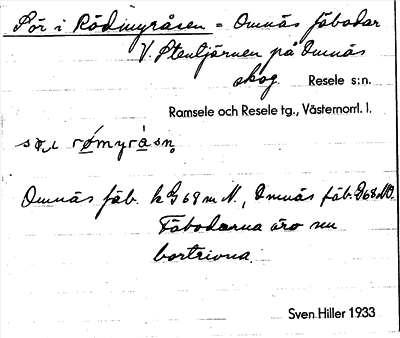 Sör i Rödmyråsen = Omnäs fäbodar
V. Stentjärnen på Omnäs
skog. Resele s:n.
Ramsele och Resele tg., Västernorrl. l.
rømyråsn̥
Omnäs fäb. k G68 m N., Omnäs fäb. G68 NO.
Fäbodarna äro nu
bortrivna.
Sven Hiller 1933